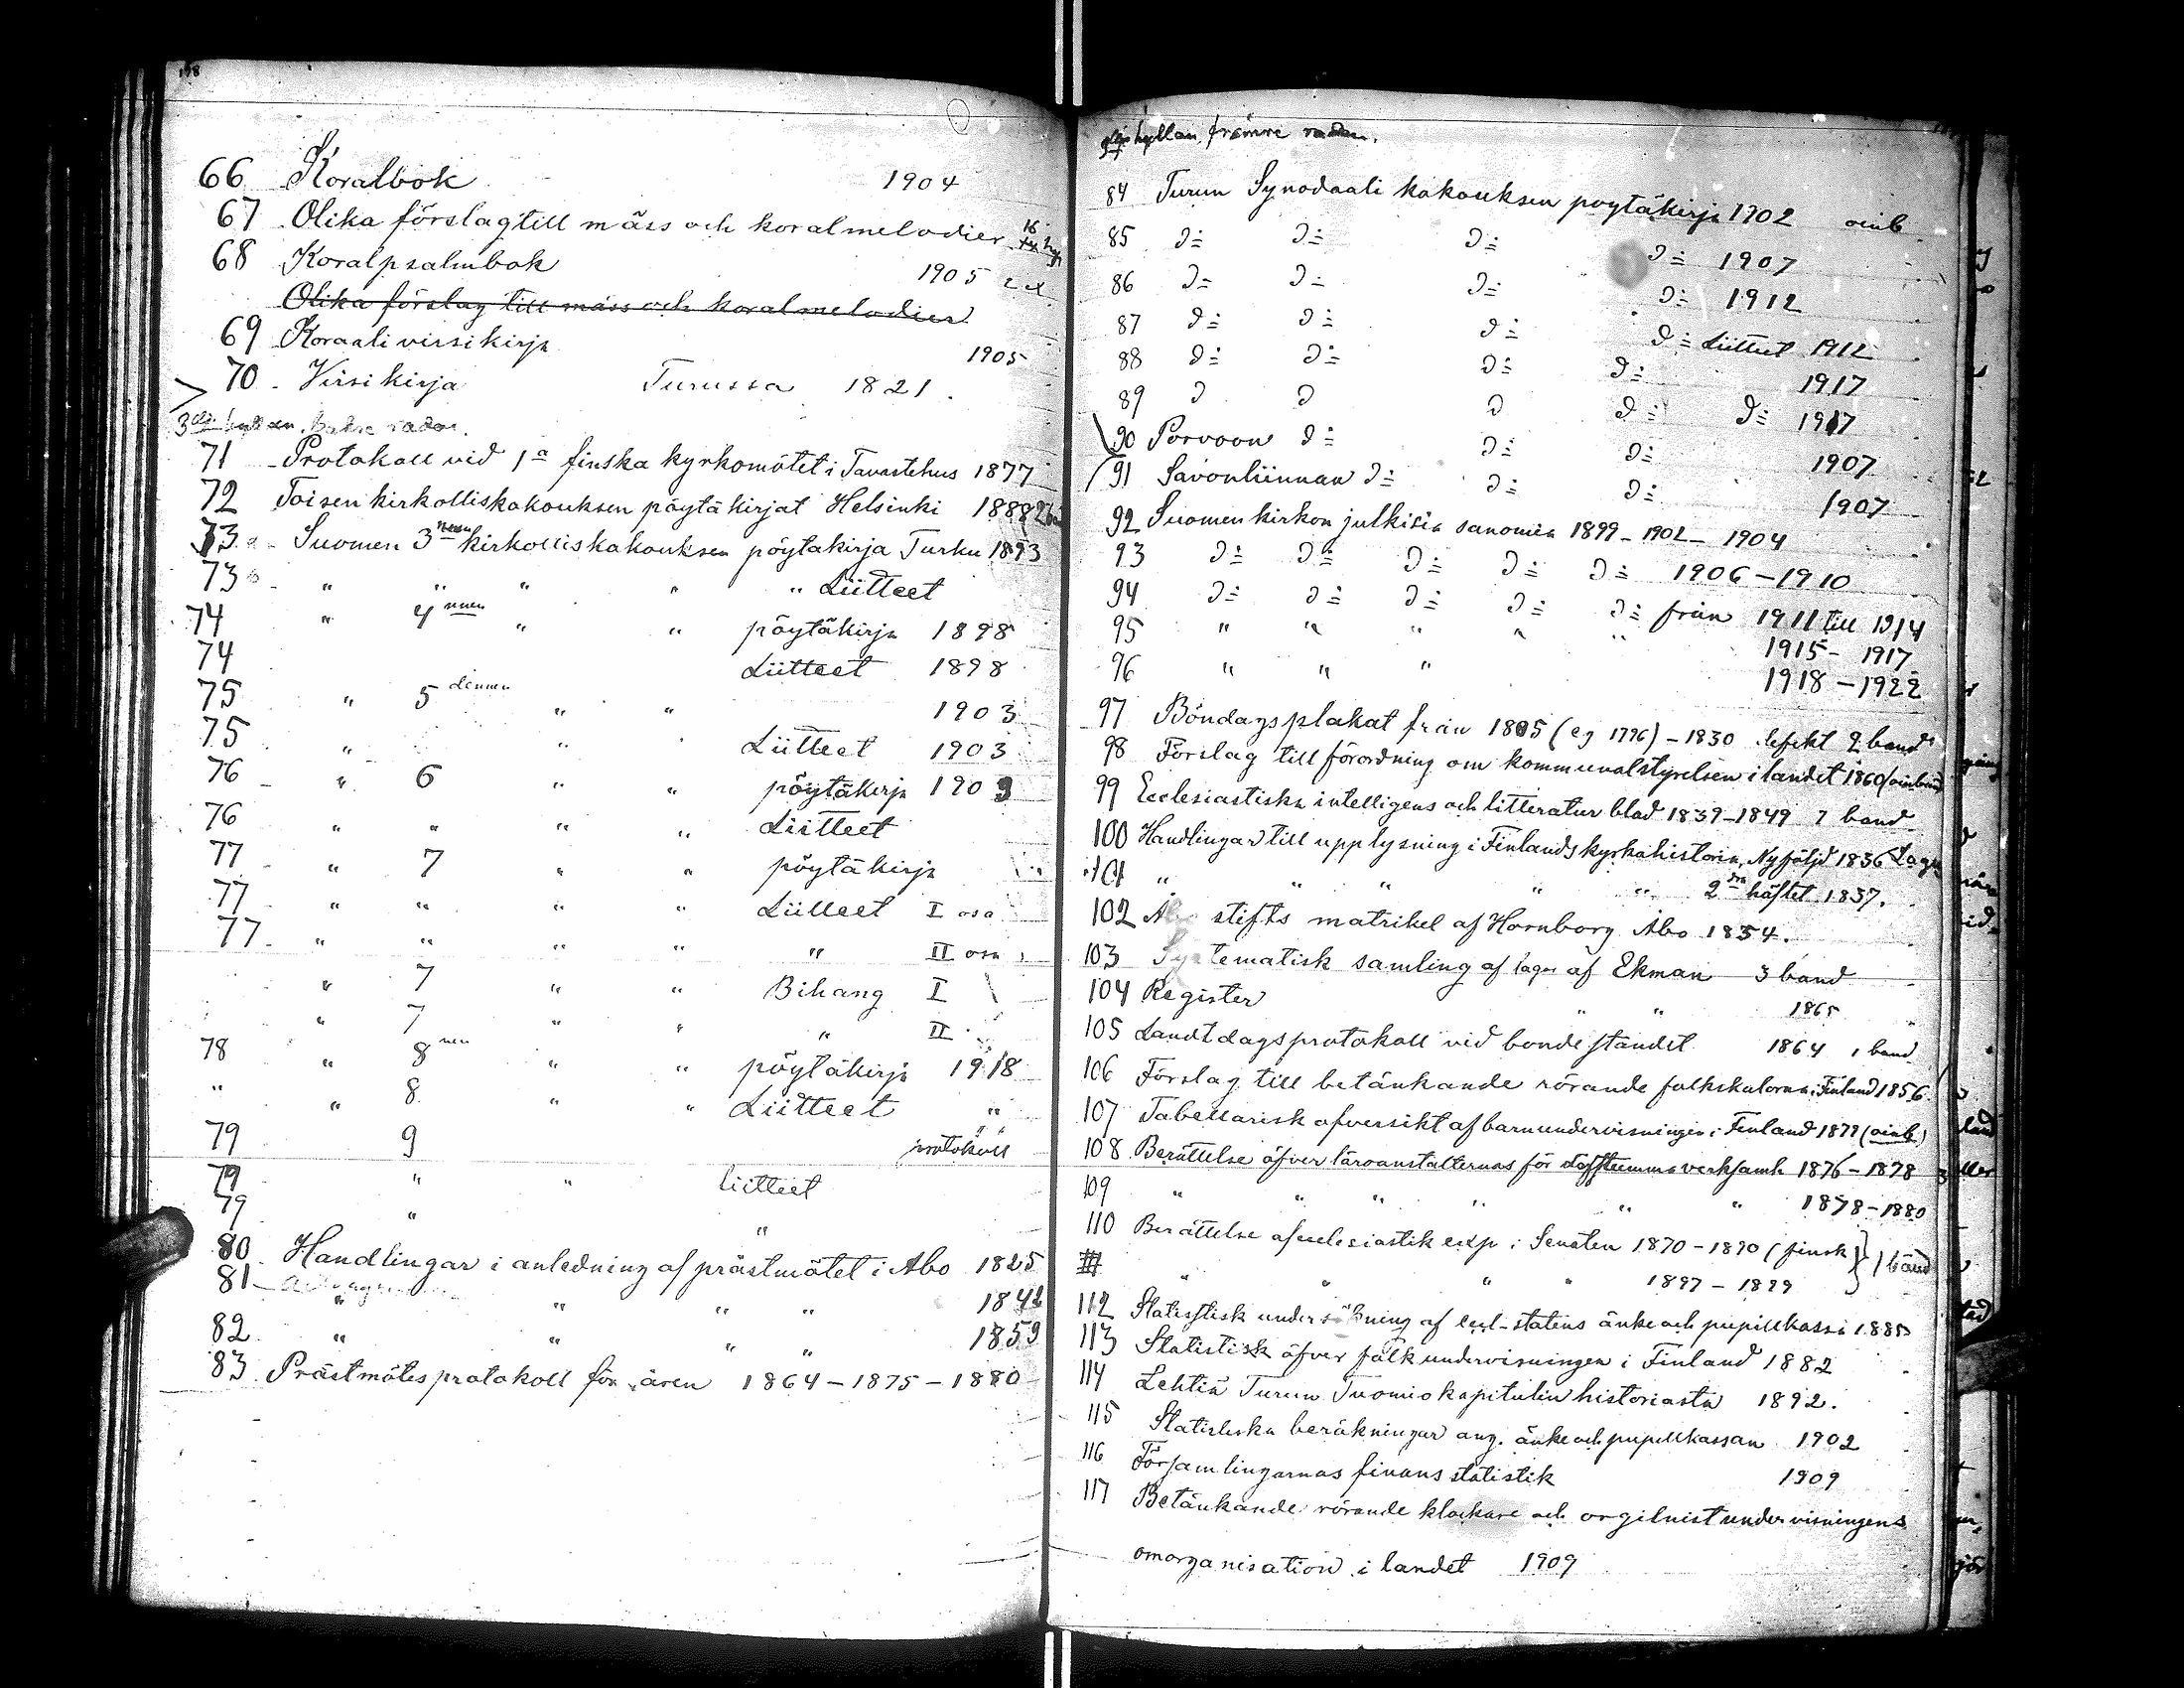 198
66 Koralbok 1904
67 Olika förslag till mäss och koralmelodier 16
68 Koralpsalmbok 1905 2 ex
Olika förslag till mäss och koralmelodier
69 Koraalivirsikirja 1905
70 Virsikirja Turussa 1821.
3dje hyllan, bakre raden.
71 Protokoll vid 1a finska kyrkomötet i Tavastehus 1877
72 Toisen kirkolliskokouksen pöytäkirjat Helsinki 1888
73 a Suomen 3nnen kirkolliskokouksen pöytäkirja Turku 1893
73 b " " " " " Liitteet
74 " 4nnen " " pöytäkirja 1898
74 Liitteet 1898
75 " 5dennen " " 1903
75 " " " Liitteet 1903
76 " 6 " " pöytäkirja 1909
76 " " " " Liitteet
77 " 7 " " pöytäkirja
77 " " " " Liitteet I osa
77 " " " " " II osa
" 7 " " Bihang I
" 7 " " " II
78 " 8nnen " " pöytäkirja 1918
" " 8 " " Liitteet "
79 9 protokoll
79 " " liitteet
79 " "
80 Handlingar i anledning af prästmötet i Åbo 1825
81 " " " " 1842
82 " " " " 1859
83 Prästmötesprotokoll för åren 1864 – 1875 – 1880
hyllan, främre raden.
84 Turun Synodaali kokouksen pöytäkirja 1902 oinb
85 D:o D:o D:o D:o 1907
86 D:o D:o D:o D:o 1912
87 D:o D:o D:o D:o Liitteet 1912
88 D:o D:o D:o D:o 1917
89 D D D D:o D:o 1917
90 Porvoon D:o D:o D:o 1907
91 Savonlinnan D:o D:o D:o 1907
92 Suomen kirkon julkisia sanomia 1899 – 1902 – 1904
93 D:o D:o D:o D:o D:o 1906 – 1910
94 D:o D:o D:o D:o D:o från 1911 till 1914
95 " " " " " 1915 – 1917
96 " " " 1918 – 1922
97 Böndagsplakat från 1805 (eg 1796) – 1830 defekt 2 band
98 Förslag till förordning om kommunalstyrelsen i landet 1860 (oinbund
99 Ecclesiastiska intelligens och litteratur blad 1839–1849 7 band
100 Handlingar till upplysning i Finlands kyrkohistoria, Ny följd 1836
101 " " " " " 2dra häftet 1837.
102 Åbo stifts matrikel af Hornborg Åbo 1854.
103 Systematisk samling af lagar af Ekman 3 band
104 Register " " 1865
105 Landtdagsprotokoll vid bondeståndet 1864 1 band
106 Förslag till betänkande rörande folkskolorna i Finland 1856
107 Tabellarisk öfversikt af barnundervisningen i Finland 1877 (oinb)
108 Berättelse öfver läroanstalternas för döfstumma verksamh 1876 – 1878
109 " " " " " " 1878 – 1880
110 Berättelse af ecklesiastik exp. i Senaten 1870 – 1890 (finsk) } 1 band
" " " " 1897 – 1899
112 Statistisk undersökning af eccl-statens änke och pupillkassa 1885
113 Statistisk öfver folkundervisningen i Finland 1882
114 Lehtiä Turun Tuomiokapitulin historiasta 1892.
115 Statistiska beräkningar ang. änke och pupillkassan 1902
116 Församlingarnas finans statistik 1909
117 Betänkande rörande klockare och orgelnistundervisningens
omorganisation i landet 1909